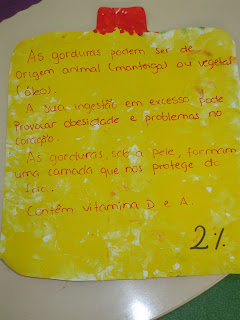 As gorduras podem ser de
origem animal (manteiga) ou vegetal
(óleo).
A sua ingestão em excesso pode
Provocar obesidade e problemas no
coração.
As gorduras, sob a pele, formam
uma camada que nos protege do
frio.
Contêm vitamina D e A.
2%